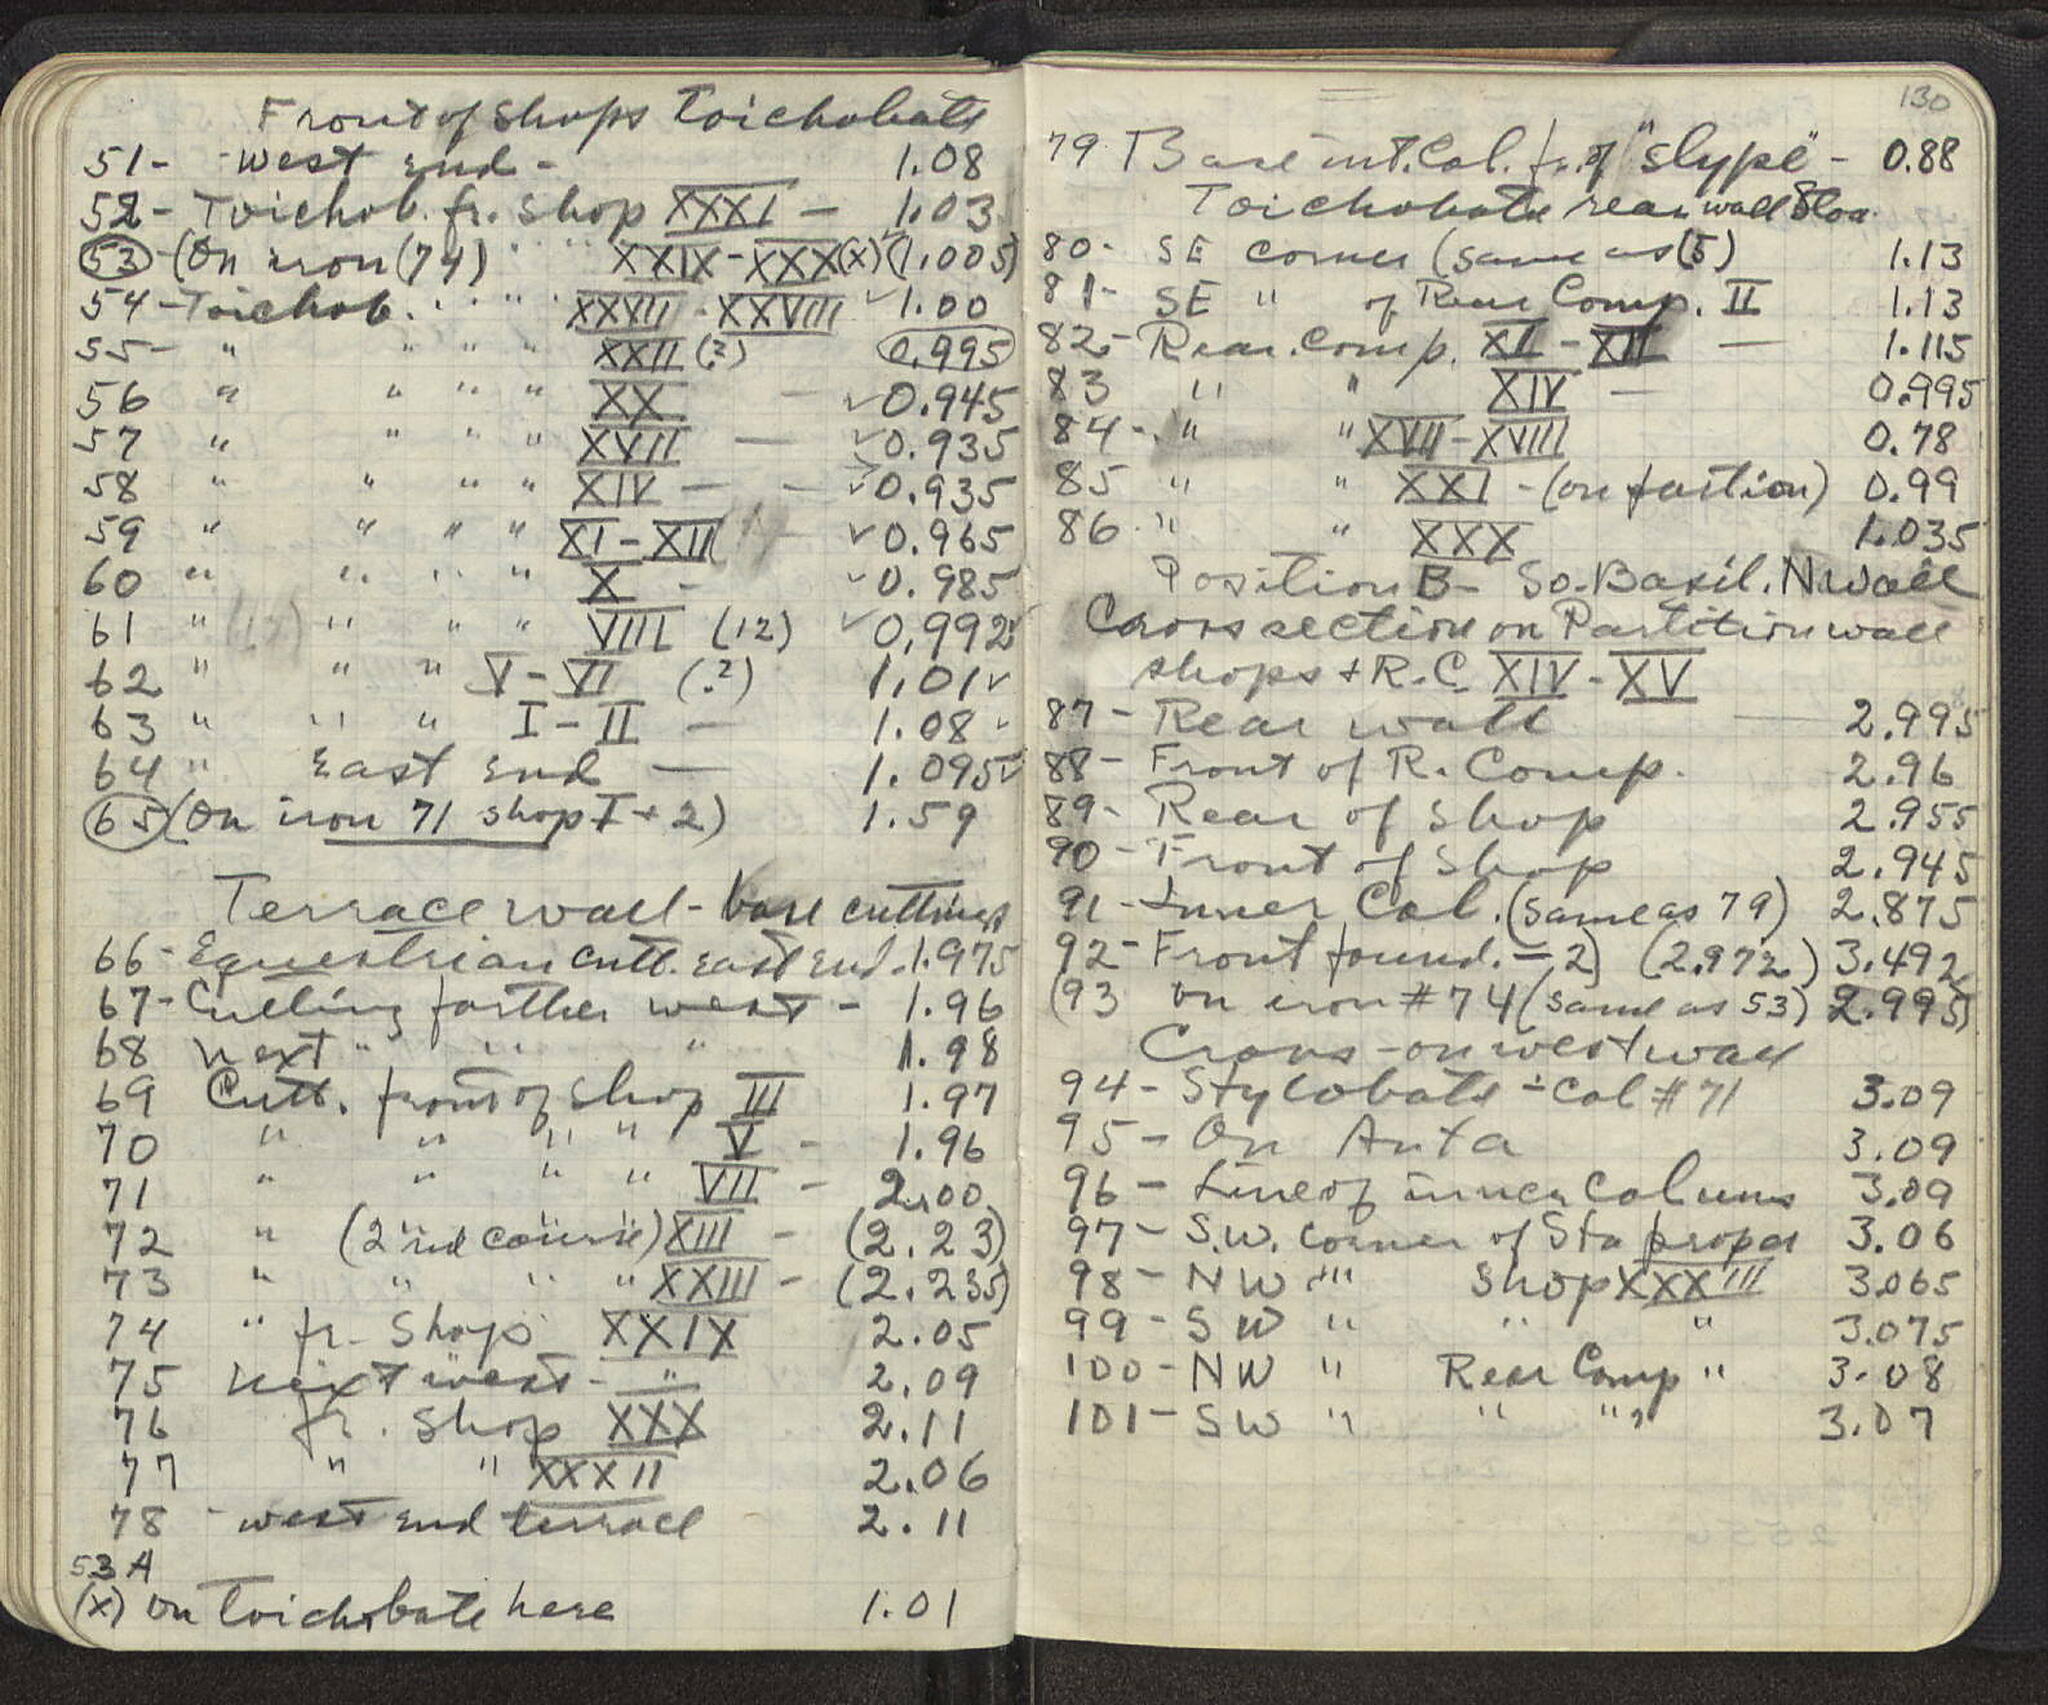 Front of Shops Toichobate
51- -west end - 1.08
52- Toichob. fr. Shop XXXI - 1.03
53 -(On iron (74) " " XXIX-XXX(x) (1.005)
54-Toichob. " " XXVII-XXVIII ✓1.00
55- " " " " XXII(?) 0.995
56 " " " " XX - ✓0.945
57 " " " " XVII - ✓0.935
58 " " " " XIV - - ✓0.935
59 " " " " XI-XII - ✓0.965
60 " " " " X - ✓0.985
61 " (12) " " " VIII (12) ✓0.992✓
62 " " " V-VI (?) 1.01✓
63 " " " I-II - 1.08✓
64 " East end - 1.095✓
65 (On iron 71 shop I+2) 1.59
Terrace wall-base cuttings
66-Equestrian cutt. east end-1.975
67-Cutting farther west- 1.96
68 Next " " " 1.98
69 Cutt. front of Shop III 1.97
70 " " " " V - 1.96
71 " " " " VII - 2.00
72 " (2nd course) XIII - (2.23)
73 " " " " XXIII - (2.235)
74 " fr. Shops XXIX 2.05
75 Next west- " 2.09
76 fr. Shop XXX 2.11
77 " " XXXII 2.06
78 -west end terrace 2.11
53A
(x) on Toichobate here 1.01
130
79 Base int. Col. fr. of "slype" - 0.88
Toichobate rear wall Stoa
80- SE corner (same as (5) 1.13
81- SE " of Rear Comp. II 1.13
82- Rear. Comp. XI-XII - 1.115
83 " " XIV - 0.995
84-" " XVII-XVIII 0.78
85 " " XXI -(on portion) 0.99
86 " " XXX 1.035
Position B- So. Basil. N wall
Cross section on Partition wall
shops + R.C. XIV-XV
87-Rear wall - 2.995
88-Front of R. Comp. 2.96
89-Rear of Shop 2.955
90-Front of Shop 2.945
91-Inner Col. (same as 79) 2.875
92-Front found. -2) (2.972) 3.492
(93 on iron #74 (same as 53) 2.995)
Cross-on west wall
94-Stylobate -Col #71 3.09
95-On Anta 3.09
96-Line of inner Columns 3.09
97-S.W. corner of Sto proper 3.06
98-NW " Shop XXXIII 3.065
99-SW " " " 3.075
100-NW " Rear Comp " 3.08
101-SW " " " 3.07